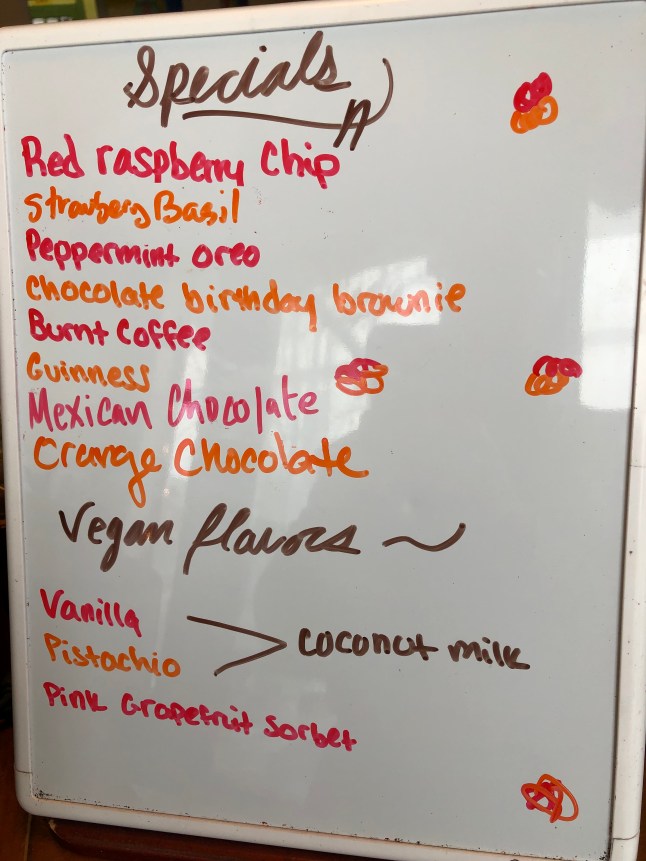 Specials
Red raspberry Chip
Strawberry Basil
Peppermint oreo
Chocolate birthday brownie
Burnt Coffee
Guinness
Mexican Chocolate
Orange Chocolate
Vegan flavors ~
Vanilla
Pistachio
coconut milk
Pink Grapefruit Sorbet